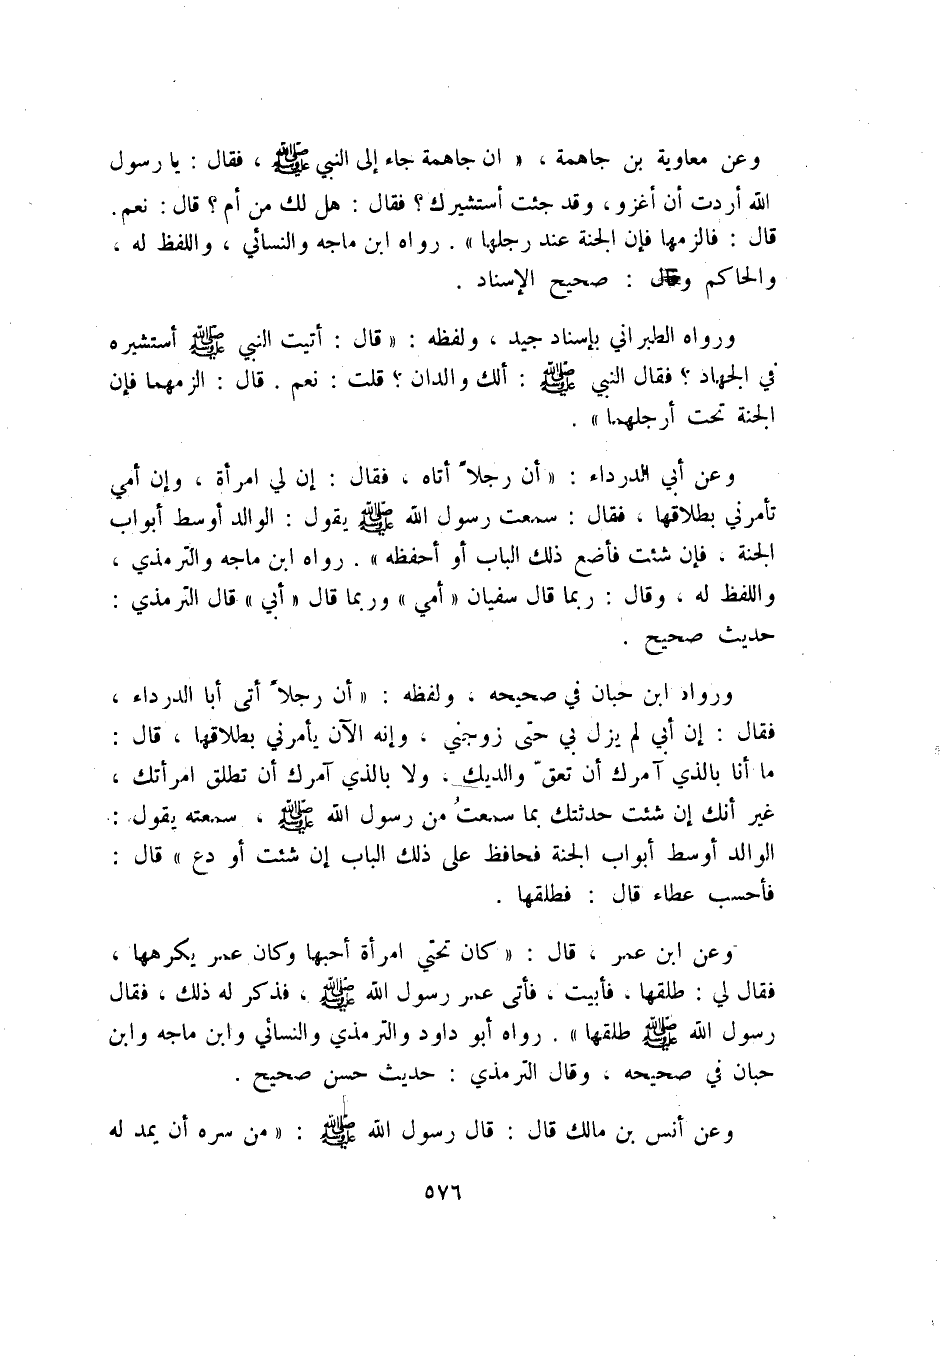 وعن معاوية بن جاهمة ، « ان جاهمة جاء إلى النبي ﷺ ، فقال : يا رسول
الله أردت أن أغزو ، وقد جئت أستشيرك ؟ فقال : هل لك من أم ؟ قال : نعم .
قال : فالزمها فإن الجنة عند رجلها » . رواه ابن ماجه والنسائي ، واللفظ له ،
والحاكم وقال : صحيح الإسناد .
ورواه الطبراني بإسناد جيد ، ولفظه : « قال : أتيت النبي ﷺ أستشيره
في الجهاد ؟ فقال النبي ﷺ : ألك والدان ؟ قلت : نعم . قال : الزمهما فإن
الجنة تحت أرجلهما » .
وعن أبي الدرداء : « أن رجلاً أتاه ، فقال : إن لي امرأة ، وإن أمي
تأمرني بطلاقها ، فقال : سمعت رسول الله ﷺ يقول : الوالد أوسط أبواب
الجنة ، فإن شئت فأضع ذلك الباب أو أحفظه » . رواه ابن ماجه والترمذي ،
واللفظ له ، وقال : ربما قال سفيان « أمي » وربما قال « أبي » قال الترمذي :
حديث صحيح .
ورواه ابن حبان في صحيحه ، ولفظه : « أن رجلاً أتى أبا الدرداء ،
فقال : إن أبي لم يزل بي حتى زوجني ، وإنه الآن يأمرني بطلاقها ، قال :
ما أنا بالذي آمرك أن تعقّ والديك ، ولا بالذي آمرك أن تطلق امرأتك ،
غير أنك إن شئت حدثتك بما سمعتُ من رسول الله ﷺ ، سمعته يقول :
الوالد أوسط أبواب الجنة فحافظ على ذلك الباب إن شئت أو دع » قال :
فأحسب عطاء قال : فطلقها .
وعن ابن عمر ، قال : « كان تحتي امرأة أحبها وكان عمر يكرهها ،
فقال لي : طلقها ، فأبيت ، فأتى عمر رسول الله ﷺ ، فذكر له ذلك ، فقال
رسول الله ﷺ طلقها » . رواه أبو داود والترمذي والنسائي وابن ماجه وابن
حبان في صحيحه ، وقال الترمذي : حديث حسن صحيح .
وعن أنس بن مالك قال : قال رسول الله ﷺ : « من سره أن يمد له
٥٧٦